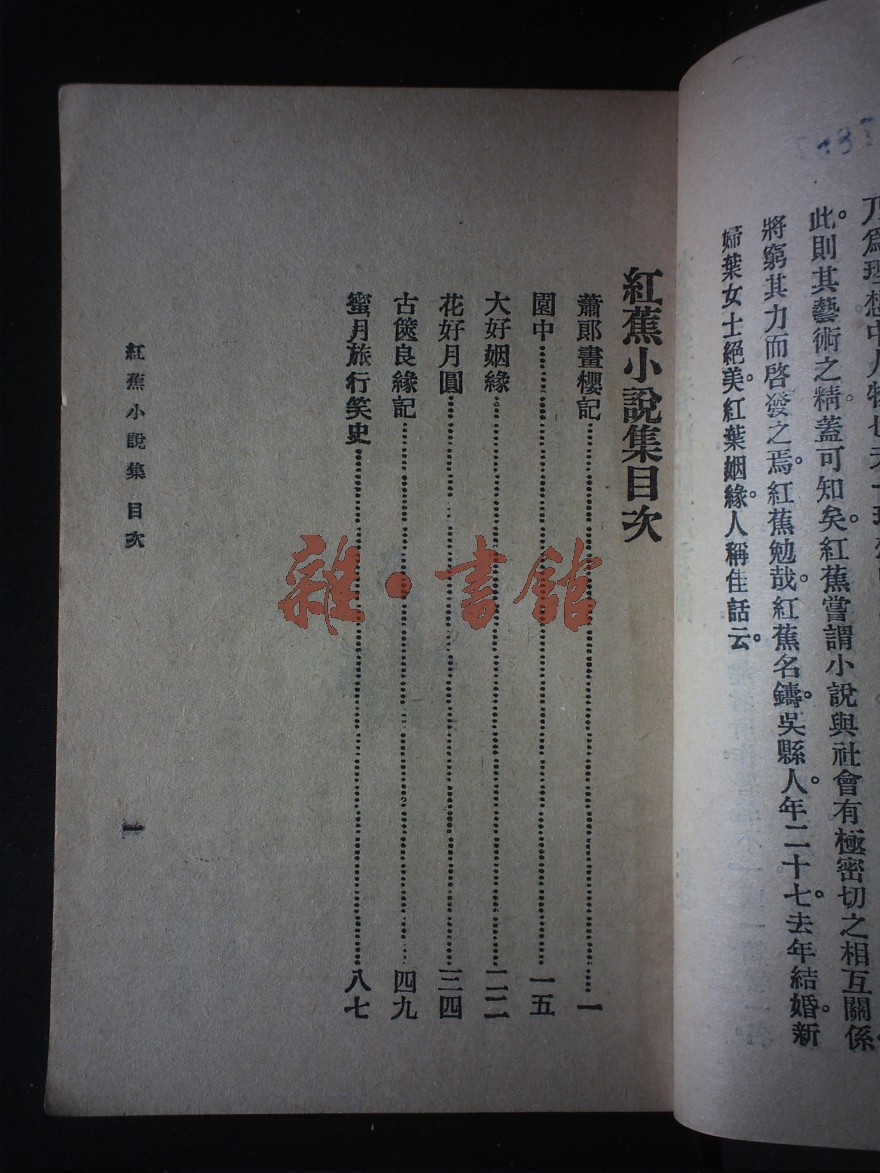 乃爲理想中人物也
此則其藝術之精。蓋可知矣。紅蕉嘗謂小說與社會有極密切之相互關係。
將窮其力而啓發之焉。紅蕉勉哉。紅蕉名鑄。吳縣人。年二十七。去年結婚。新
婦葉女士絕美。紅葉姻緣。人稱佳話云。
紅蕉小說集目次
蕭郎畫櫻記……一
園中……一五
大好姻緣……二二
花好月圓……三四
古篋良緣記……四九
蜜月旅行笑史……八七
紅蕉小說集 目次
一
雜·書館